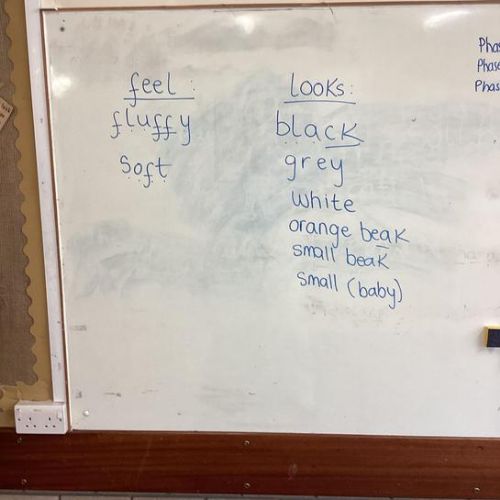 feel :
fluffy
soft
looks:
black
grey
white
orange beak
small beak
small (baby)
Phas
Phase
Phas